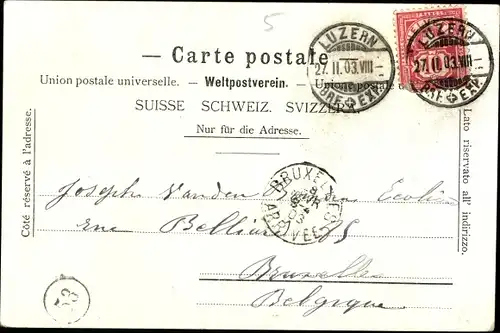 5
— Carte postale. —
Union postale universelle. — Weltpostverein. — Unione postale
SUISSE SCHWEIZ. SVIZZERA.
Nur für die Adresse.
LUZERN
27. II. 03. VIII
BRF. EXP.
LUZERN
27. II. 03. VIII
BRF. EXP.
Côté réservé à l'adresse.
Lato riservato all' indirizzo.
BRUXELLES
ARRIVEE
Joseph Vanden Ecolier
rue Belliard 25
Bruxelles
Belgique.